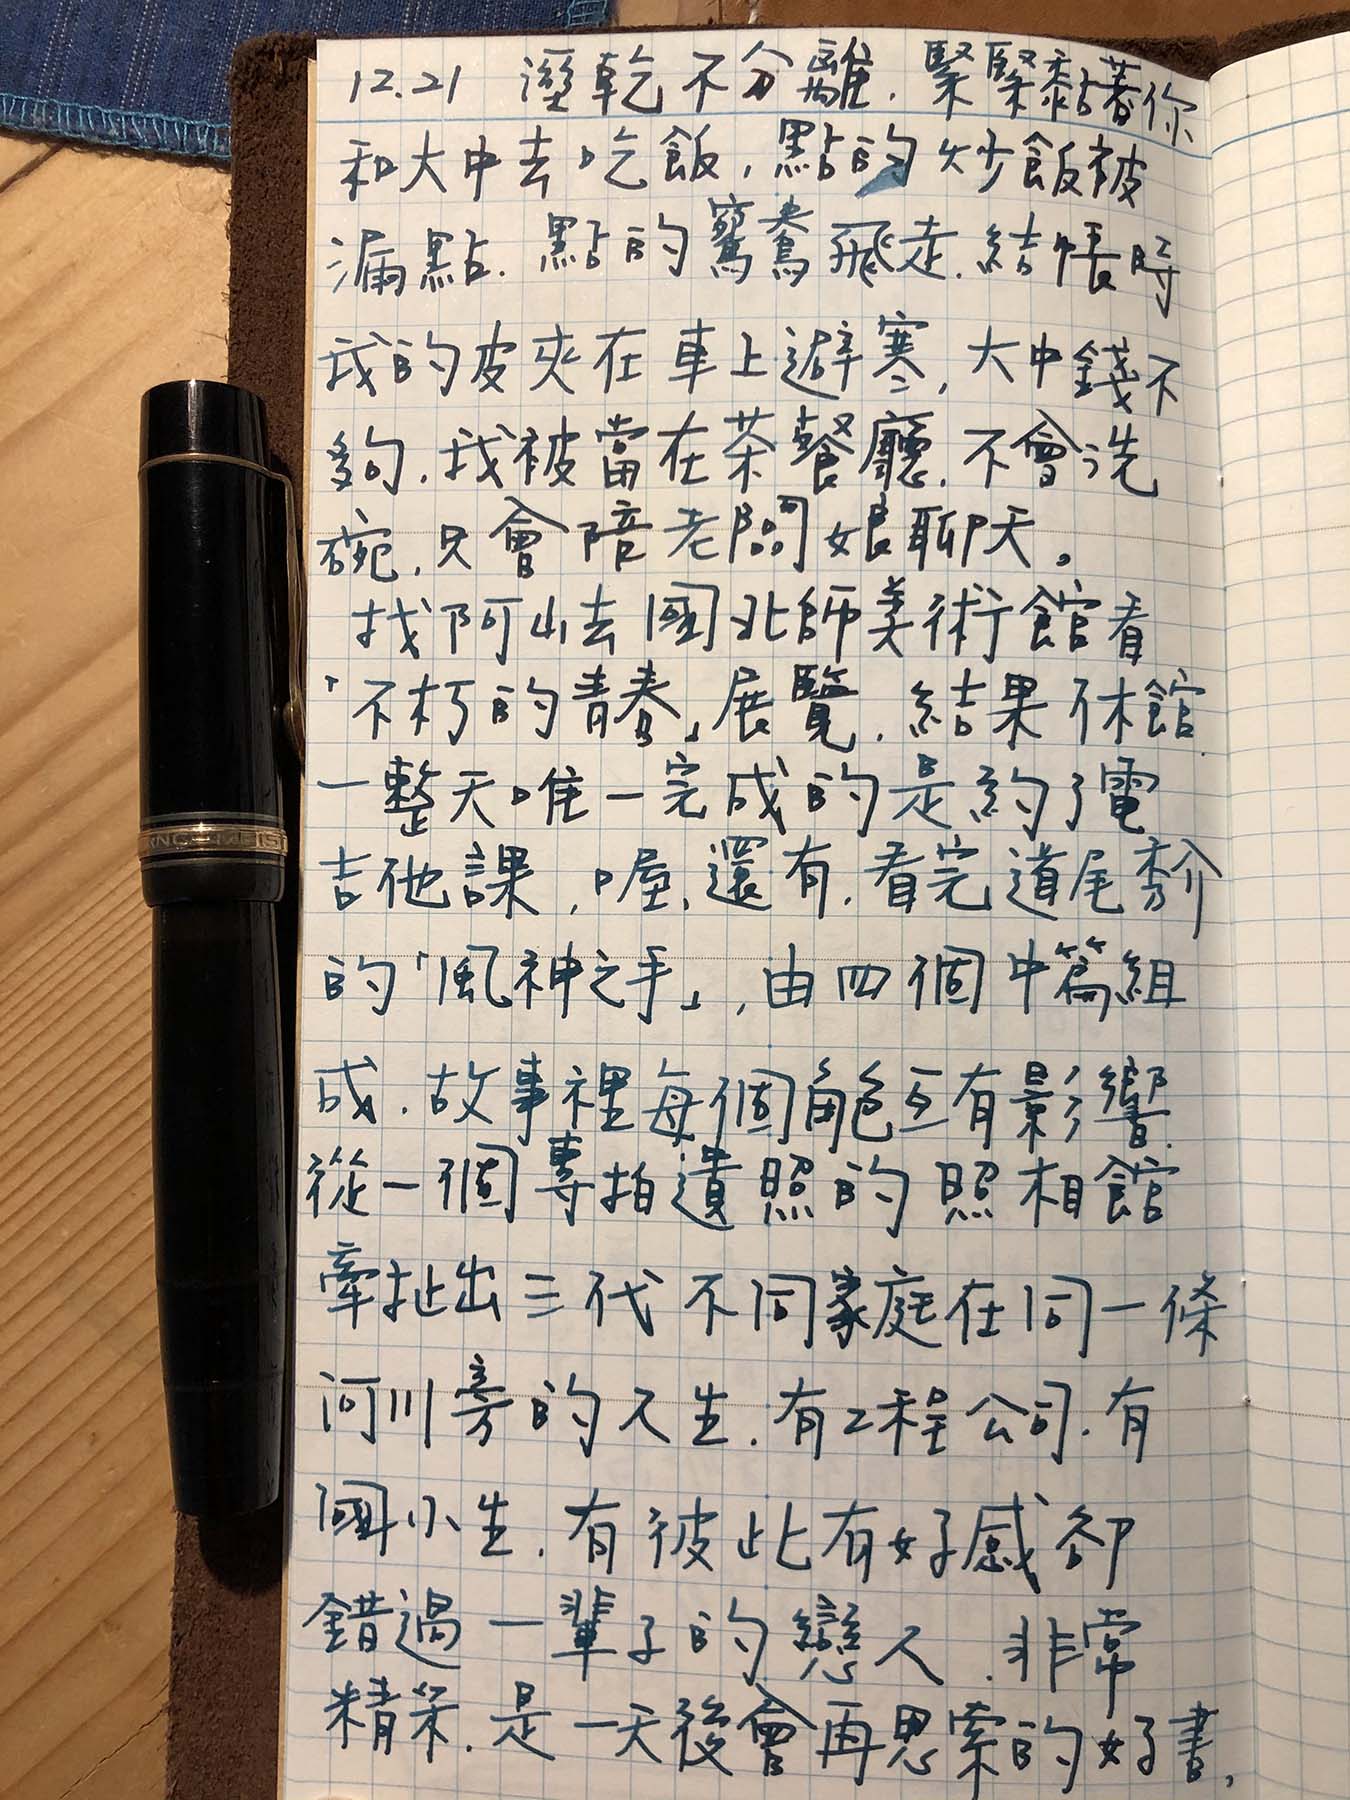 12.21 溼乾不分離.緊緊黏著你
和大中去吃飯.點的炒飯被
漏點.點的鴛鴦飛走.結帳時
我的皮夾在車上避寒,大中錢不
夠.我被當在茶餐廳.不會洗
碗.只會陪老闆娘聊天。
找阿山去國北師美術館看
「不朽的青春」展覽.結果休館.
一整天唯一完成的是約了電
吉他課,喔,還有.看完道尾秀介
的「風神之手」,由四個中篇組
成.故事裡每個角色互有影響.
從一個專拍遺照的照相館
牽扯出三代不同家庭在同一條
河川旁的人生.有工程公司.有
國小生.有彼此有好感卻
錯過一輩子的戀人.非常
精采.是一天後會再思索的好書.